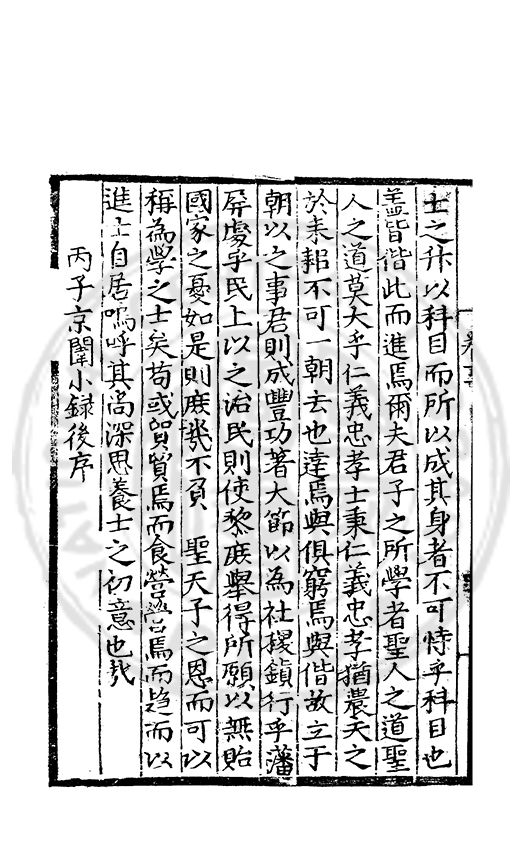 士之升以科目而所以成其身者不可恃乎科目也
盖皆偕此而進焉爾夫君子之所學者聖人之道聖
人之道莫大乎仁義忠孝士秉仁義忠孝猶農夫之
於耒耜不可一朝去也達焉與俱窮焉與偕故立于
朝以之事君則成豐功著大節以為社稷鎮行乎藩
屏處乎民上以之治民則使黎庶舉得所願以無貽
國家之憂如是則庶幾不負 聖天子之恩而可以
稱為學之士矣苟或貿貿焉而食營營焉而趋而以
進士自居嗚呼其尚深思養士之初意也哉
丙子京闈小録後序